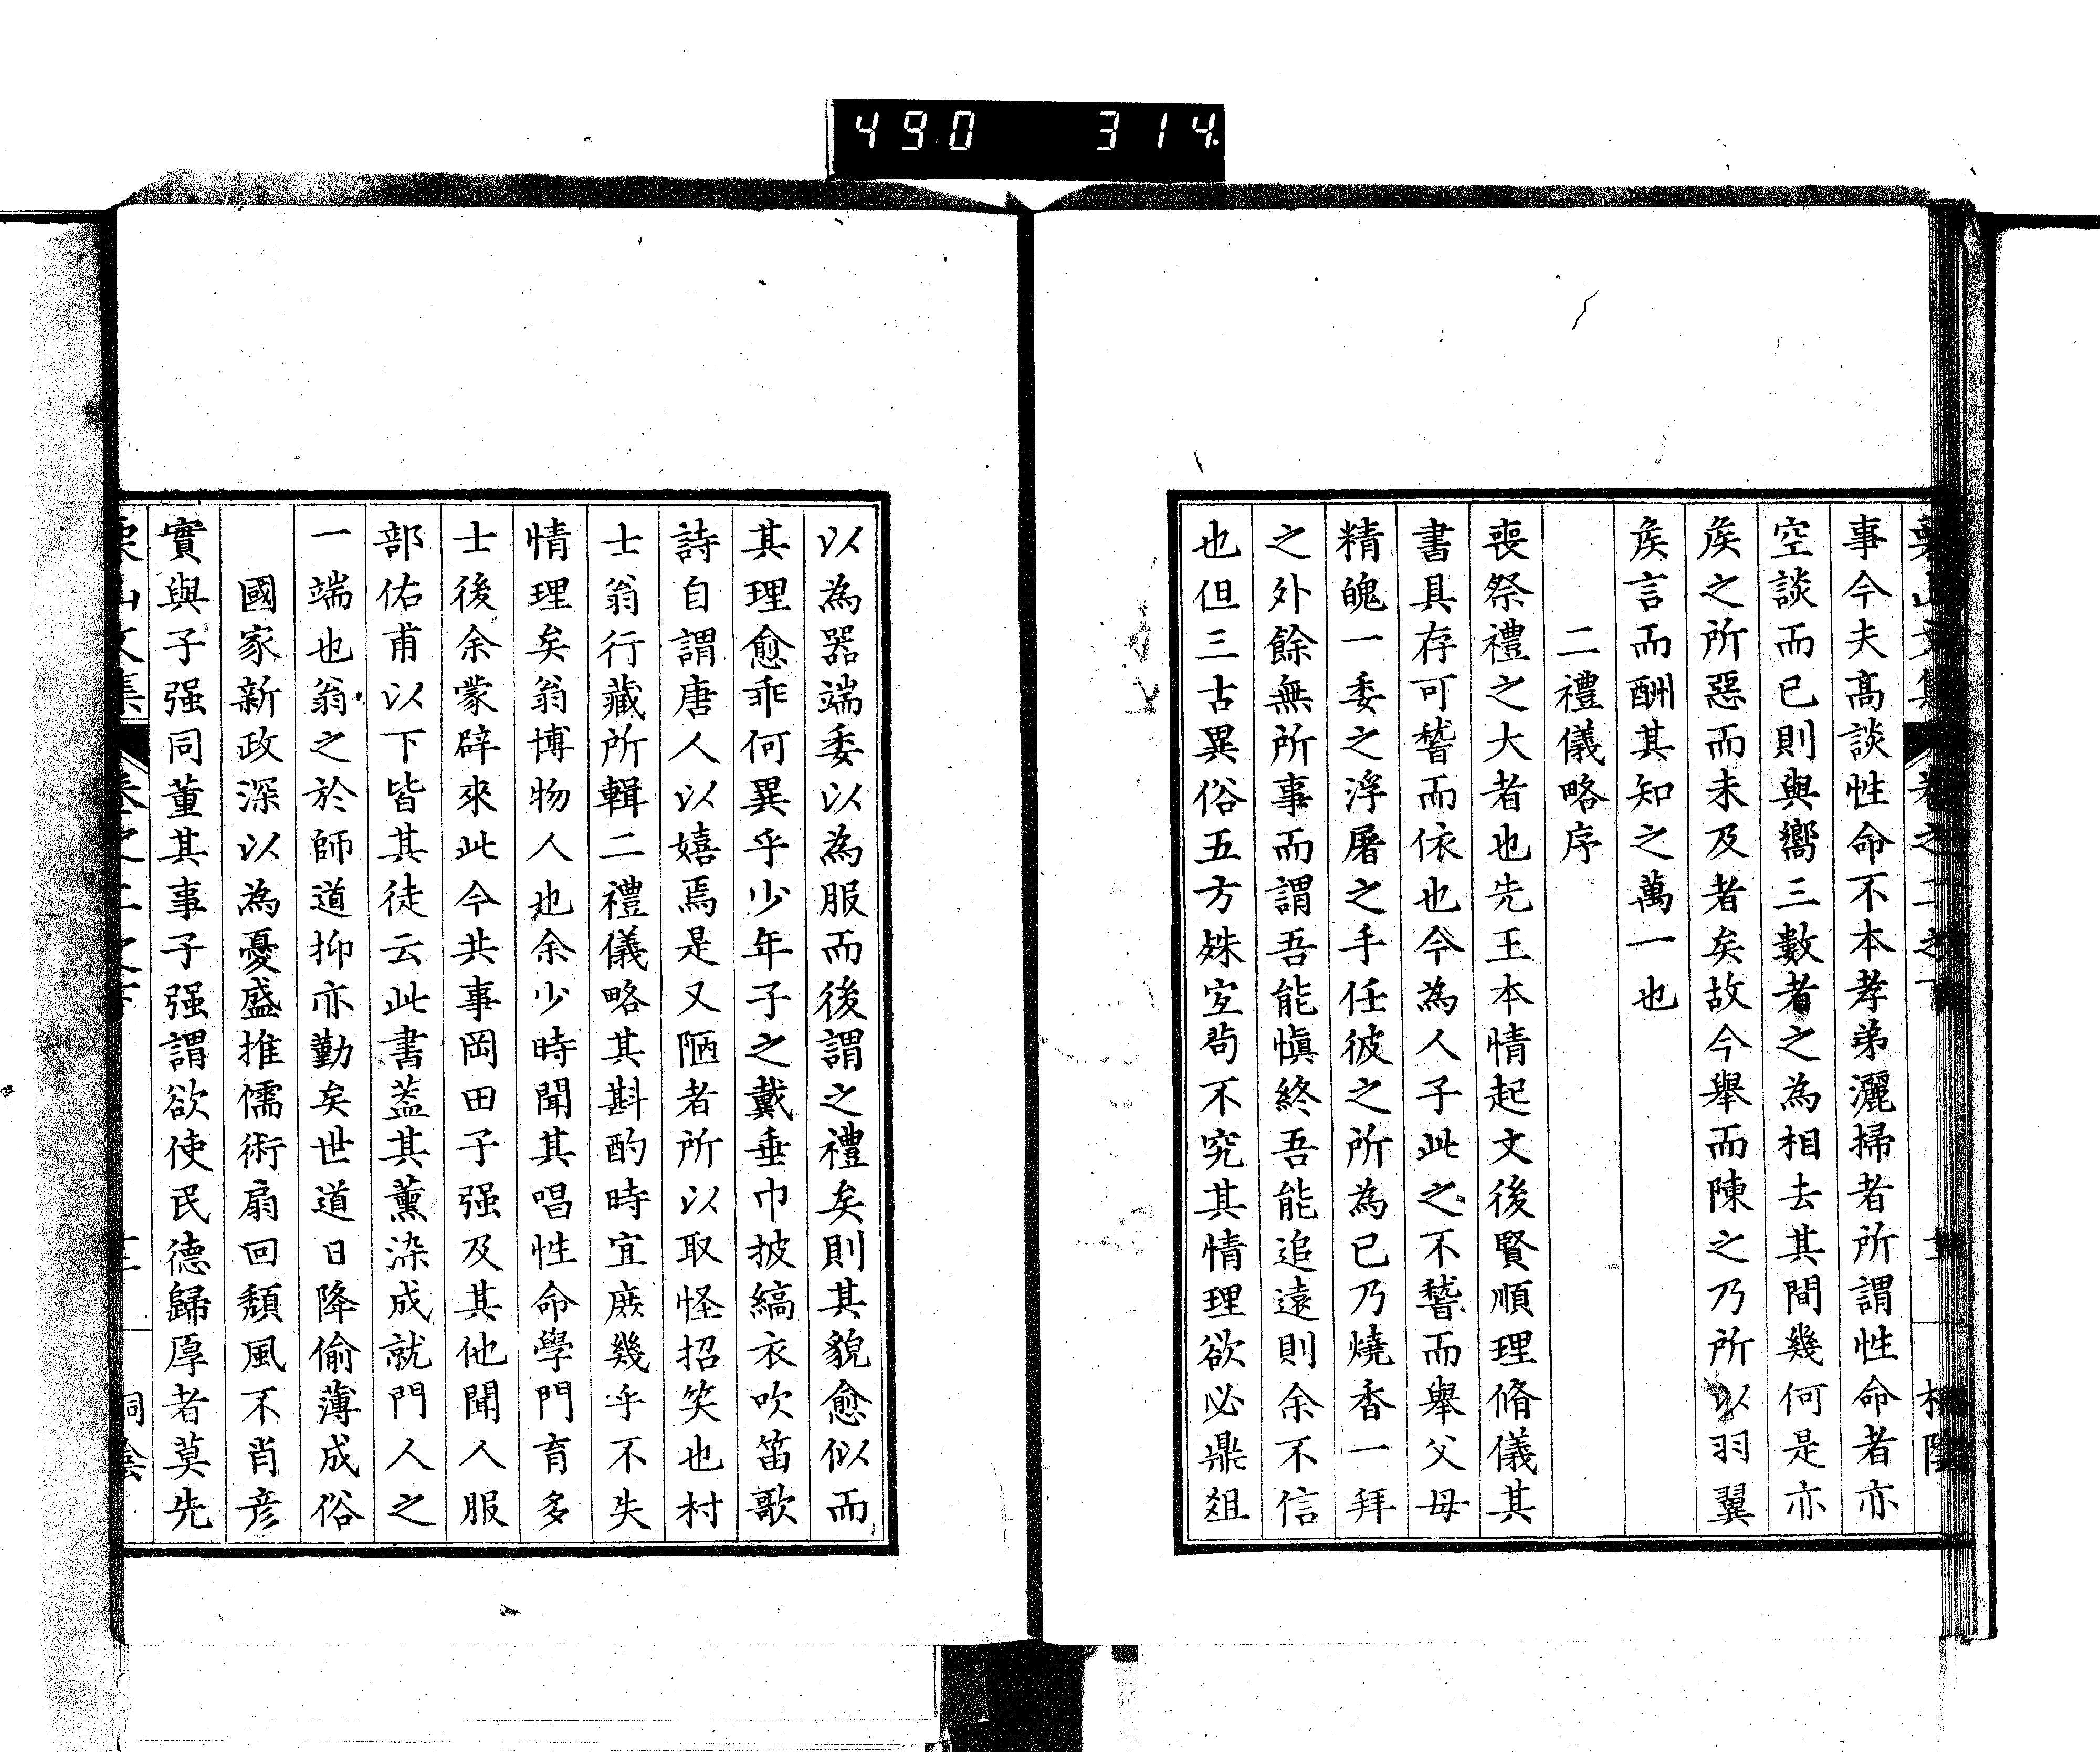 490 314
事今夫髙談性命不本孝弟灑掃者所謂性命者亦
空談而已則與嚮三數者之為相去其間幾何是亦
矦之所惡而未及者矣故今舉而陳之乃所以羽翼
矦言而酬其知之萬一也
二禮儀略序
喪祭禮之大者也先王本情起文後賢順理脩儀其
書具存可稽而依也今為人子此之不稽而舉父母
精魄一委之浮屠之手任彼之所為已乃燒香一拜
之外餘無所事而謂吾能愼終吾能追遠則余不信
也但三古異俗五方姝宜苟不究其情理欲必鼎俎
以為器端委以為服而後謂之禮矣則其貌愈似而
其理愈乖何異乎少年子之戴垂巾披縞衣吹笛歌
詩自謂唐人以嬉焉是又陋者所以取怪招笑也村
士翁行藏所輯二禮儀略其斟酌時宜庻幾乎不失
情理矣翁博物人也余少時聞其唱性命學門育多
士後余蒙辟來此今共事岡田子强及其他聞人服
部佑甫以下皆其徒云此書葢其薰染成就門人之
一端也翁之於師道抑亦勤矣世道日降偷薄成俗
國家新政深以為憂盛推儒術扇回頽風不肖彦
實與子强同董其事子强謂欲使民德歸厚者莫先
栗山文集 卷之二之下